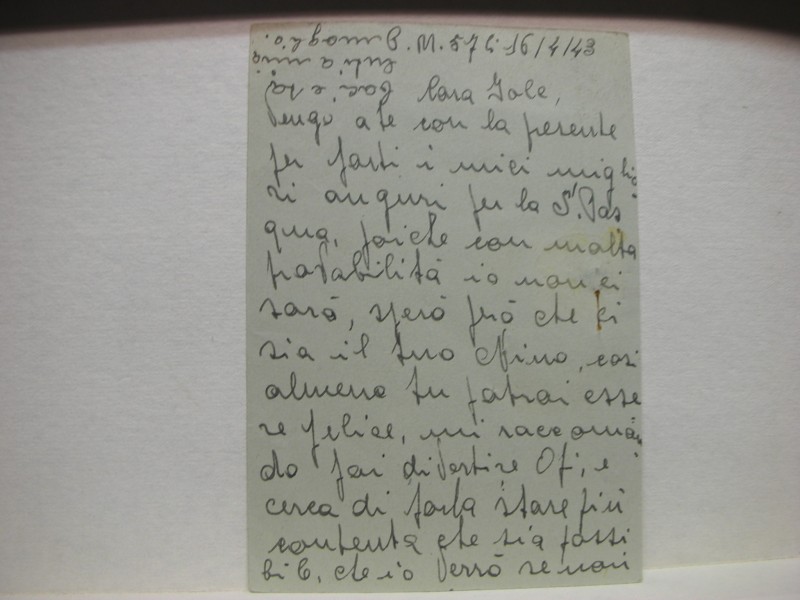 P.M. 57 li 16/4/43
Cara Iole,
Vengo a te con la presente
per farti i miei miglio
ri auguri per la S. Pas
qua, poiche con molta
probabilità io non ci
sarò, sperò però che ci
sia il tuo Nino, cosi
almeno tu potrai esse
re felice, mi raccoman
do fai divertire Ofi, e
cerca di farla stare più
contenta che sia possi
bile, che io verrò se non
baci e sa
luti a mia
maggio.